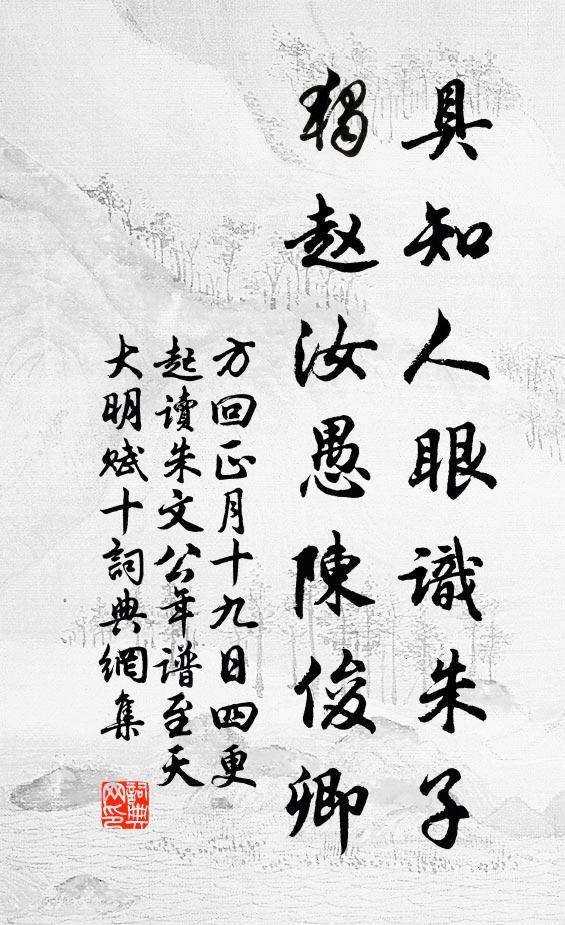 具知人眼識朱子
獨赵汝愚陳俊卿
方回正月十九日四更
起讀朱文公年谱至天
大明赋十詞典網集
詞典
网印